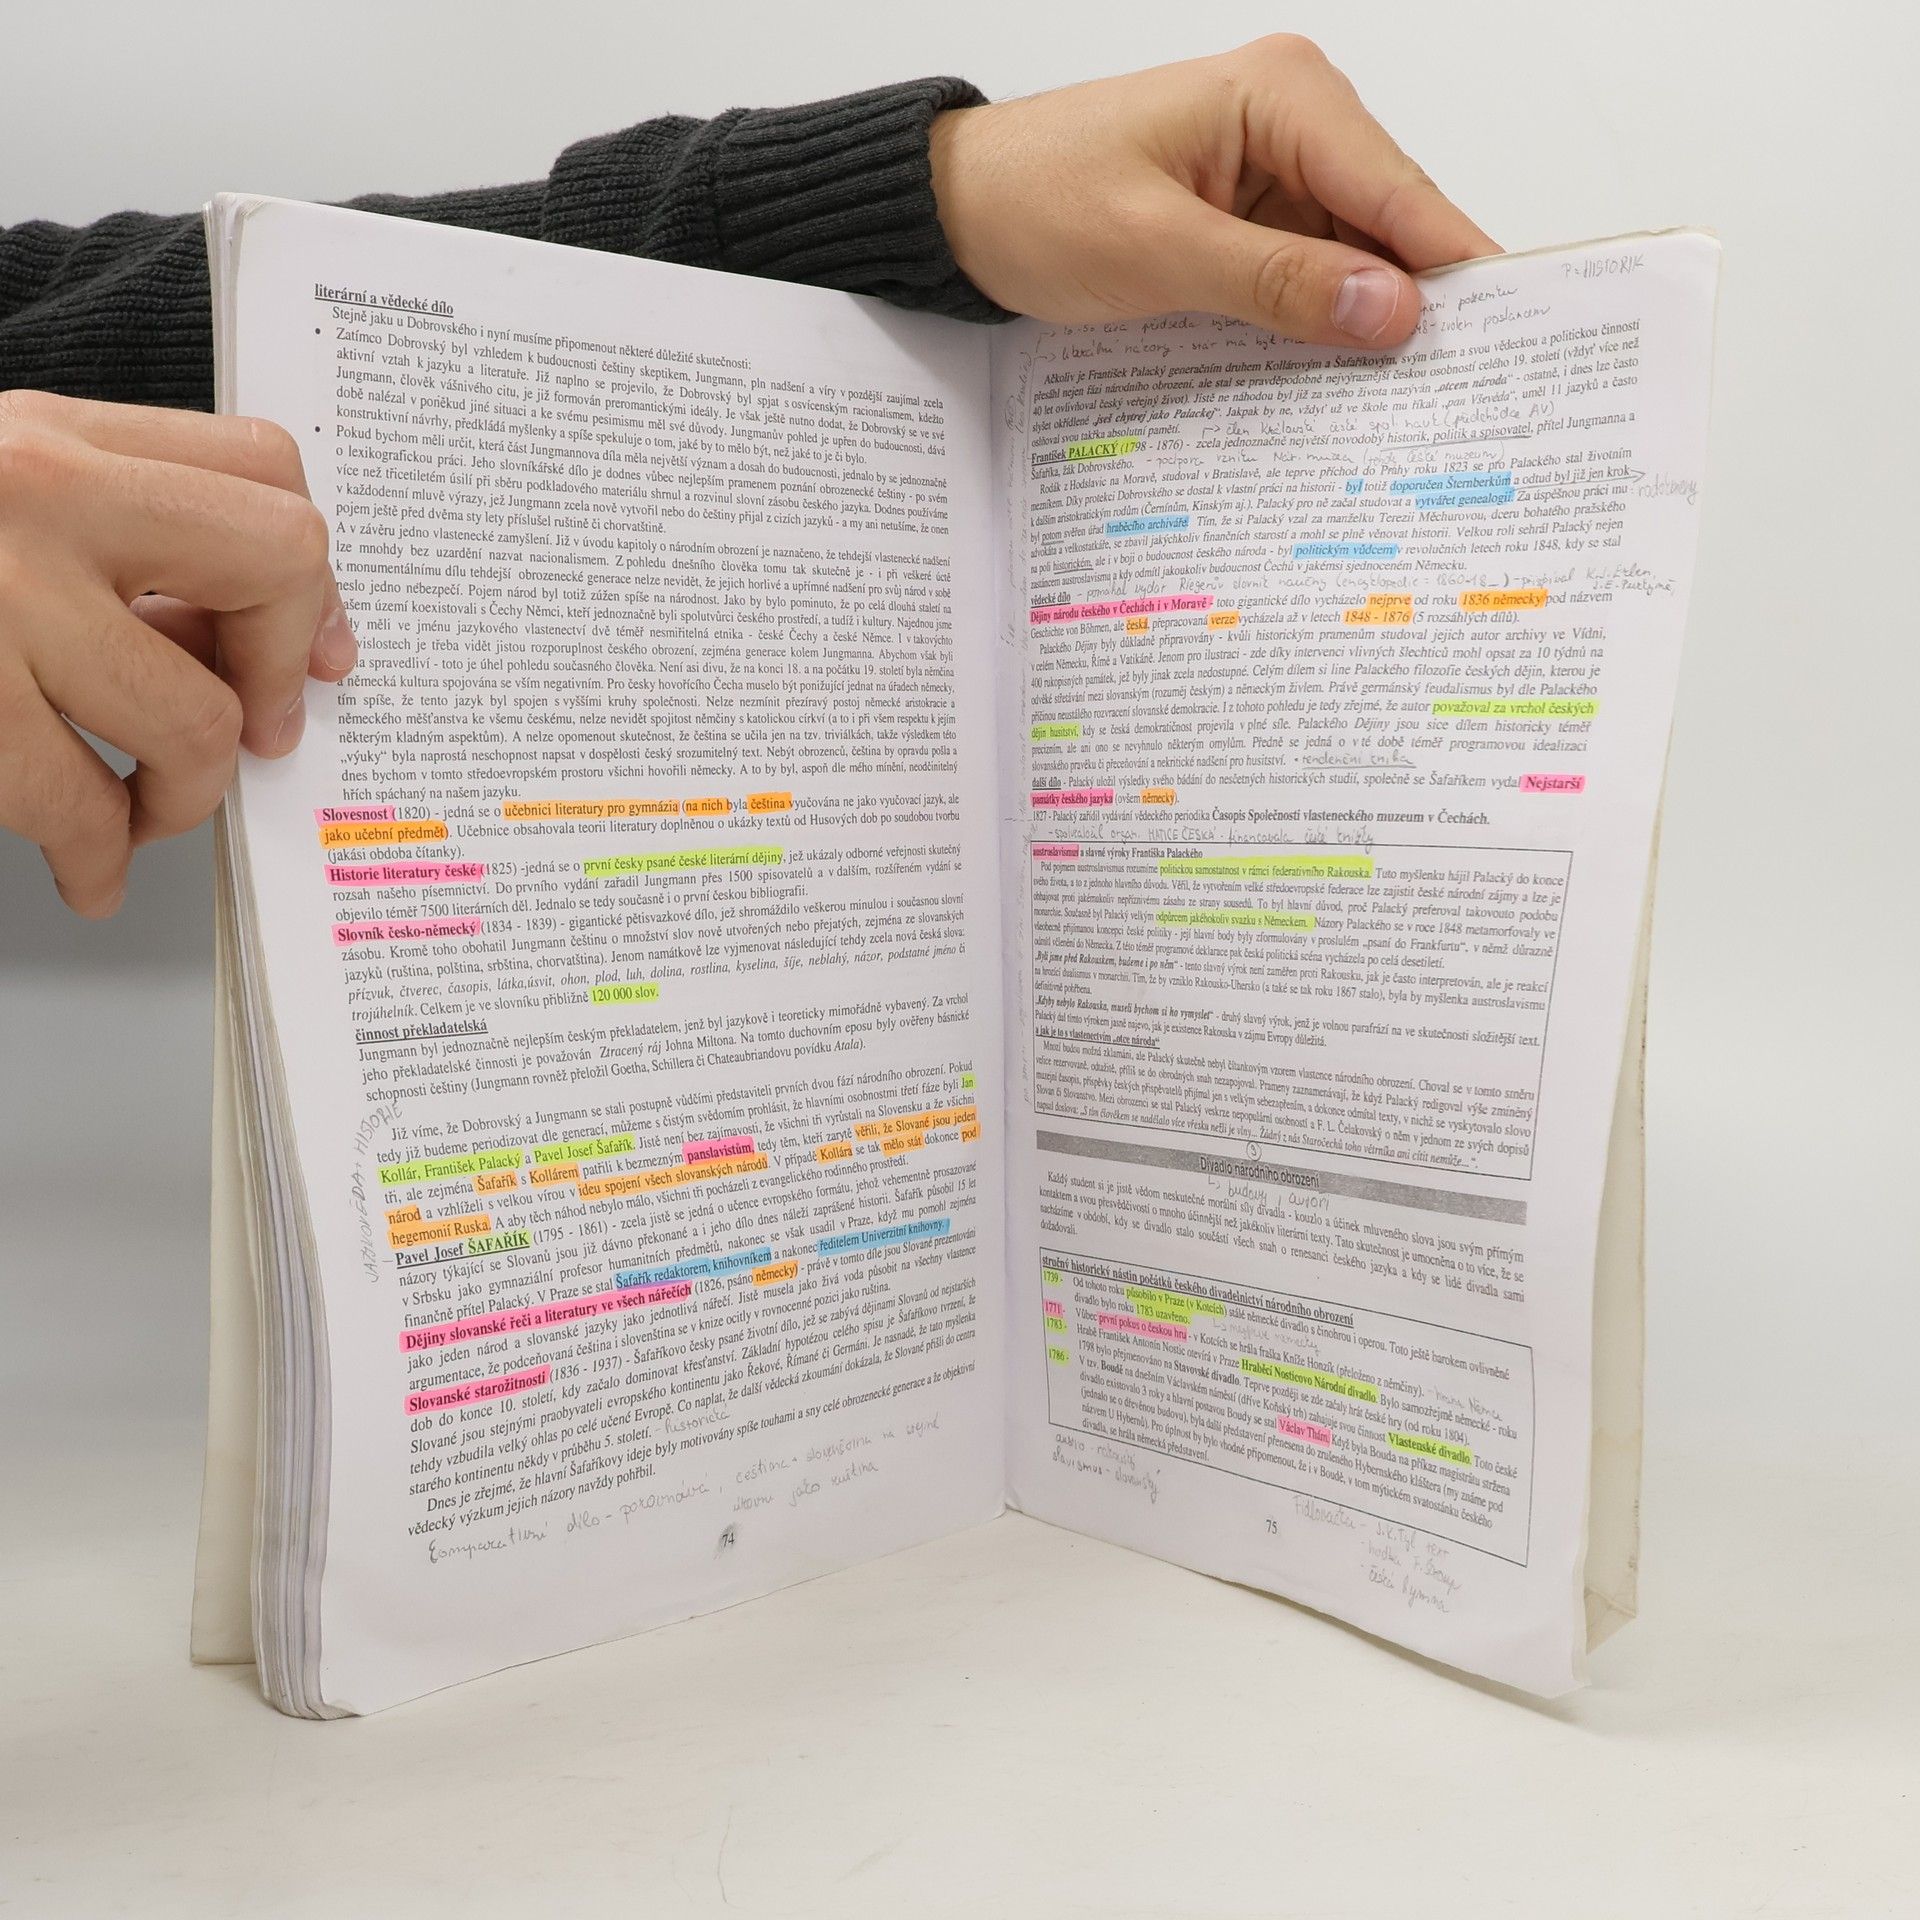 literární a vědecké dílo
Stejně jaku u Dobrovského i nyní musíme připomenout některé důležité skutečnosti:
• Zatímco Dobrovský byl vzhledem k budoucnosti češtiny skeptikem, Jungmann, pln nadšení a víry v pozdější zaujímal zcela
aktivní vztah k jazyku a literatuře. Již naplno se projevilo, že Dobrovský byl spjat s osvícenským racionalismem, kdežto
Jungmann, člověk vášnivého citu, je již formován preromantickými ideály. Je však ještě nutno dodat, že Dobrovský se ve své
době nalézal v poněkud jiné situaci a ke svému pesimismu měl své důvody. Jungmanův pohled je upřen do budoucnosti, dává
konstruktivní návrhy, předkládá myšlenky a spíše spekuluje o tom, jaké by to mělo být, než jaké to je či bylo.
• Pokud bychom měli určit, která část Jungmannova díla měla největší význam a dosah do budoucnosti, jednalo by se jednoznačně
o lexikografickou práci. Jeho slovníkářské dílo je dodnes vůbec nejlepším pramenem poznání obrozenecké češtiny - po svém
více než třicetiletém úsilí při sběru podkladového materiálu shrnul a rozvinul slovní zásobu českého jazyka. Dodnes používáme
v každodenní mluvě výrazy, jež Jungmann zcela nově vytvořil nebo do češtiny přijal z cizích jazyků - a my ani netušíme, že onen
pojem ještě před dvěma sty lety příslušel ruštině či chorvatštině.
A v závěru jedno vlastenecké zamyšlení. Již v úvodu kapitoly o národním obrození je naznačeno, že tehdejší vlastenecké nadšení
lze mnohdy bez uzardění nazvat nacionalismem. Z pohledu dnešního člověka tomu tak skutečně je - i při veškeré úctě
k monumentálnímu dílu tehdejší obrozenecké generace nelze nevidět, že jejich horlivé a upřímné nadšení pro svůj národ v sobě
neslo jedno nebezpečí. Pojem národ byl totiž zúžen spíše na národnost. Jako by bylo pominuto, že po celá dlouhá staletí na
ašem území koexistovali s Čechy Němci, kteří jednoznačně byli spolutvůrci českého prostředí, a tudíž i kultury. Najednou jsme
dy měli ve jménu jazykového vlastenectví dvě téměř nesmiřitelná etnika - české Čechy a české Němce. I v takovýchto
vislostech je třeba vidět jistou rozporuplnost českého obrození, zejména generace kolem Jungmanna. Abychom však byli
la spravedliví - toto je úhel pohledu současného člověka. Není asi divu, že na konci 18. a na počátku 19. století byla němčina
a německá kultura spojována se vším negativním. Pro česky hovořícího Čecha muselo být ponižující jednat na úřadech německy,
tím spíše, že tento jazyk byl spojen s vyššími kruhy společnosti. Nelze nezmínit přezíravý postoj německé aristokracie a
německého měšťanstva ke všemu českému, nelze nevidět spojitost němčiny s katolickou církví (a to i při všem respektu k jejím
některým kladným aspektům). A nelze opomenout skutečnost, že čeština se učila jen na tzv. triviálkách, takže výsledkem této
„výuky" byla naprostá neschopnost napsat v dospělosti český srozumitelný text. Nebýt obrozenců, čeština by opravdu pošla a
dnes bychom v tomto středoevropském prostoru všichni hovořili německy. A to by byl, aspoň dle mého mínění, neodčinitelný
hřích spáchaný na našem jazyku.
Slovesnost (1820) - jedná se o učebnici literatury pro gymnázia (na nich byla čeština vyučována ne jako vyučovací jazyk, ale
jako učební předmět). Učebnice obsahovala teorii literatury doplněnou o ukázky textů od Husových dob po soudobou tvorbu
(jakási obdoba čítanky).
Historie literatury české (1825) -jedná se o první česky psané české literární dějiny, jež ukázaly odborné veřejnosti skutečný
rozsah našeho písemnictví. Do prvního vydání zařadil Jungmann přes 1500 spisovatelů a v dalším, rozšířeném vydání se
objevilo téměř 7500 literárních děl. Jednalo se tedy současně i o první českou bibliografii.
Slovník česko-německý (1834 - 1839) - gigantické pětisvazkové dílo, jež shromáždilo veškerou minulou i současnou slovní
zásobu. Kromě toho obohatil Jungmann češtinu o množství slov nově utvořených nebo přejatých, zejména ze slovanských
jazyků (ruština, polština, srbština, chorvatština). Jenom namátkově lze vyjmenovat následující tehdy zcela nová česká slova:
přízvuk, čtverec, časopis, látka,úsvit, ohon, plod, luh, dolina, rostlina, kyselina, šíje, neblahý, názor, podstatné jméno či
trojúhelník. Celkem je ve slovníku přibližně 120 000 slov.
činnost překladatelská
Jungmann byl jednoznačně nejlepším českým překladatelem, jenž byl jazykově i teoreticky mimořádně vybavený. Za vrchol
jeho překladatelské činnosti je považován Ztracený ráj Johna Miltona. Na tomto duchovním eposu byly ověřeny básnické
schopnosti češtiny (Jungmann rovněž přeložil Goetha, Schillera či Chateaubriandovu povídku Atala).
Již víme, že Dobrovský a Jungmann se stali postupně vůdčími představiteli prvních dvou fází národního obrození. Pokud
tedy již budeme periodizovat dle generací, můžeme s čistým svědomím prohlásit, že hlavními osobnostmi třetí fáze byli Jan
Kollár, František Palacký a Pavel Josef Šafařík. Jistě není bez zajímavosti, že všichni tři vyrůstali na Slovensku a že všichni
tři, ale zejména Šafařík s Kollárem patřili k bezmezným panslavistům, tedy těm, kteří zarytě věřili, že Slované jsou jeden
národ a vzhlíželi s velkou vírou v ideu spojení všech slovanských národů. V případě Kollára se tak mělo stát dokonce pod
hegemonií Ruska. A aby těch náhod nebylo málo, všichni tři pocházeli z evangelického rodinného prostředí.
Pavel Josef ŠAFAŘÍK (1795 - 1861) - zcela jistě se jedná o učence evropského formátu, jehož vehementně prosazované
názory týkající se Slovanů jsou již dávno překonané a i jeho dílo dnes náleží zaprášené historii. Šafařík působil 15 let
v Srbsku jako gymnaziální profesor humanitních předmětů, nakonec se však usadil v Praze, když mu pomohl zejména
finančně přítel Palacký. V Praze se stal Šafařík redaktorem, knihovníkem a nakonec ředitelem Univerzitní knihovny.
Dějiny slovanské řeči a literatury ve všech nářečích (1826, psáno německy) - právě v tomto díle jsou Slované prezentování
jako jeden národ a slovanské jazyky jako jednotlivá nářečí. Jistě musela jako živá voda působit na všechny vlastence
argumentace, že podceňovaná čeština i slovenština se v knize ocitly v rovnocenné pozici jako ruština.
Slovanské starožitnosti (1836 - 1937) - Šafaříkovo česky psané životní dílo, jež se zabývá dějinami Slovanů od nejstarších
dob do konce 10. století, kdy začalo dominovat křesťanství. Základní hypotézou celého spisu je Šafaříkovo tvrzení, že
Slované jsou stejnými praobyvateli evropského kontinentu jako Řekové, Římané či Germáni. Je nasnadě, že tato myšlenka
tehdy vzbudila velký ohlas po celé učené Evropě. Co naplat, že další vědecká zkoumání dokázala, že Slované přišli do centra
starého kontinentu někdy v průběhu 5. století. - historická
Dnes je zřejmé, že hlavní Šafaříkovy ideje byly motivovány spíše touhami a sny celé obrozenecké generace a že objektivní
vědecký výzkum jejich názory navždy pohřbil.
JAZYKOVĚDA + HISTORIE
komparativní dílo - porovnává, čeština + slovenština na stejné
úrovni jako ruština
74
P = HISTORIK
zvolen poslancem
Ačkoliv je František Palacký generačním druhem Kollárovým a Šafaříkovým, svým dílem a svou vědeckou a politickou činností
přesáhl nejen fázi národního obrození, ale stal se pravděpodobně nejvýraznější českou osobností celého 19. století (vždyť více než
40 let ovlivňoval český veřejný život). Jistě ne náhodou byl již za svého života nazýván „otcem národa" - ostatně, i dnes lze často
slyšet okřídlené „jseš chytrej jako Palackej". Jakpak by ne, vždyť už ve škole mu říkali „pan Vševěda", uměl 11 jazyků a často
oslňoval svou takřka absolutní pamětí. → člen Královské české spol. nauk (předchůdce AV)
František PALACKÝ (1798 - 1876) - zcela jednoznačně největší novodobý historik, politik a spisovatel, přítel Jungmanna a
Šafaříka, žák Dobrovského. - podpora vzniku Nár. muzea (tehdy České muzeum)
Rodák z Hodslavic na Moravě, studoval v Bratislavě, ale teprve příchod do Prahy roku 1823 se pro Palackého stal životním
mezníkem. Díky protekci Dobrovského se dostal k vlastní práci na historii - byl totiž doporučen Šternberkům a odtud byl již jen krok
k dalším aristokratickým rodům (Černínům, Kinským aj.). Palacký pro ně začal studovat a vytvářet genealogii. Za úspěšnou práci mu
byl potom svěřen úřad hraběcího archiváře. Tím, že si Palacký vzal za manželku Terezii Měchurovou, dceru bohatého pražského
advokáta a velkostatkáře, se zbavil jakýchkoliv finančních starostí a mohl se plně věnovat historii. Velkou roli sehrál Palacký nejen
na poli historickém, ale i v boji o budoucnost českého národa - byl politickým vůdcem v revolučních letech roku 1848, kdy se stal
zastáncem austroslavismu a kdy odmítl jakoukoliv budoucnost Čechů v jakémsi sjednoceném Německu.
vědecké dílo - pomáhal vydat Riegerův slovník naučný
Dějiny národu českého v Čechách i v Moravě - toto gigantické dílo vycházelo nejprve od roku 1836 německy pod názvem
Geschichte von Böhmen, ale česká, přepracovaná verze vycházela až v letech 1848 - 1876 (5 rozsáhlých dílů).
Palackého Dějiny byly důkladně připravovány - kvůli historickým pramenům studoval jejich autor archivy ve Vídni,
v celém Německu, Římě a Vatikáně. Jenom pro ilustraci - zde díky intervenci vlivných šlechticů mohl opsat za 10 týdnů na
400 rukopisných památek, jež byly jinak zcela nedostupné. Celým dílem si line Palackého filozofie českých dějin, kterou je
odvěké střetávání mezi slovanským (rozuměj českým) a německým živlem. Právě germánský feudalismus byl dle Palackého
příčinou neustálého rozvracení slovanské demokracie. I z tohoto pohledu je tedy zřejmé, že autor považoval za vrchol českých
dějin husitství, kdy se česká demokratičnost projevila v plné síle. Palackého Dějiny jsou sice dílem historicky téměř
precizním, ale ani ono se nevyhnulo některým omylům. Předně se jedná o v té době téměř programovou idealizaci
slovanského pravěku či přeceňování a nekritické nadšení pro husitství. • tendenční kniha
další dílo - Palacký uložil výsledky svého bádání do nesčetných historických studií, společně se Šafaříkem vydal Nejstarší
památky českého jazyka (ovšem německý).
1827 - Palacký zařídil vydávání vědeckého periodika Časopis Společnosti vlasteneckého muzeum v Čechách.
- spoluzaložil organ. MATICE ČESKÁ - financovala české knížky
austroslavismus a slavné výroky Františka Palackého
Pod pojmem austroslavismus rozumíme politickou samostatnost v rámci federativního Rakouska. Tuto myšlenku hájil Palacký do konce
svého života, a to z jednoho hlavního důvodu. Věřil, že vytvořením velké středoevropské federace lze zajistit české národní zájmy a lze je
obhajovat proti jakémukoliv nepříznivému zásahu ze strany sousedů. To byl hlavní důvod, proč Palacký preferoval takovouto podobu
monarchie. Současně byl Palacký velkým odpůrcem jakéhokoliv svazku s Německem. Názory Palackého se v roce 1848 metamorfovaly ve
všeobecně přijímanou koncepci české politiky - její hlavní body byly zformulovány v proslulém „psaní do Frankfurtu", v němž důrazně
odmítl včlenění do Německa. Z této téměř programové deklarace pak česká politická scéna vycházela po celá desetiletí.
„Byli jsme před Rakouskem, budeme i po něm" - tento slavný výrok není zaměřen proti Rakousku, jak je často interpretován, ale je reakcí
na hrozící dualismus v monarchii. Tím, že by vzniklo Rakousko-Uhersko (a také se tak roku 1867 stalo), byla by myšlenka austroslavismu
definitivně pohřbena.
„Kdyby nebylo Rakouska, museli bychom si ho vymyslet" - druhý slavný výrok, jenž je volnou parafrází na ve skutečnosti složitější text.
Palacký dal tímto výrokem jasně najevo, jak je existence Rakouska v zájmu Evropy důležitá.
a jak je to s vlastenectvím „otce národa"
Mnozí budou možná zklamáni, ale Palacký skutečně nebyl čítankovým vzorem vlastence národního obrození. Choval se v tomto směru
velice rezervovaně, odtažitě, příliš se do obrodných snah nezapojoval. Prameny zaznamenávají, že když Palacký redigoval výše zmíněný
muzejní časopis, příspěvky českých přispívatelů přijímal jen s velkým sebezapřením, a dokonce odmítal texty, v nichž se vyskytovalo slovo
Slovan či Slovanstvo. Mezi obrozenci se stal Palacký veskrze nepopulární osobností a F. L. Čelakovský o něm v jednom ze svých dopisů
napsal doslova: „S tím člověkem se nadělalo více vřesku nežli je vlny... Žádný z nás Staročechů toho větrníka ani cítit nemůže...".
Divadlo národního obrození
↳ budovy, autoři
Každý student si je jistě vědom neskutečné morální síly divadla - kouzlo a účinek mluveného slova jsou svým přímým
kontaktem a svou přesvědčivostí o mnoho účinnější než jakékoliv literární texty. Tato skutečnost je umocněna o to více, že se
nacházíme v období, kdy se divadlo stalo součástí všech snah o renesanci českého jazyka a kdy se lidé divadla sami
dožadovali.
stručný historický nástin počátků českého divadelnictví národního obrození
1739 - Od tohoto roku působilo v Praze (v Kotcích) stálé německé divadlo s činohrou i operou. Toto ještě barokem ovlivněné
divadlo bylo roku 1783 uzavřeno. ↳ nejprve německy
1771 - Vůbec první pokus o českou hru - v Kotcích se hrála fraška Kníže Honzík (přeloženo z němčiny).
1783 - Hrabě František Antonín Nostic otevírá v Praze Hraběcí Nosticovo Národní divadlo. Bylo samozřejmě německé - roku
1798 bylo přejmenováno na Stavovské divadlo. Teprve později se zde začaly hrát české hry (od roku 1804).
1786 - V tzv. Boudě na dnešním Václavském náměstí (dříve Koňský trh) zahajuje svou činnost Vlastenské divadlo. Toto české
divadlo existovalo 3 roky a hlavní postavou Boudy se stal Václav Thám. Když byla Bouda na příkaz magistrátu stržena
(jednalo se o dřevěnou budovu), byla další představení přenesena do zrušeného Hybernského kláštera (my známe pod
názvem U Hybernů). Pro úplnost by bylo vhodné připomenout, že i v Boudě, v tom mýtickém svatostánku českého
divadla, se hrála německá představení.
austro - rakouský
slavismus - slovanský
75
Fidlovačka - J. K. Tyl text
- hudba F. Škroup
- česká hymna